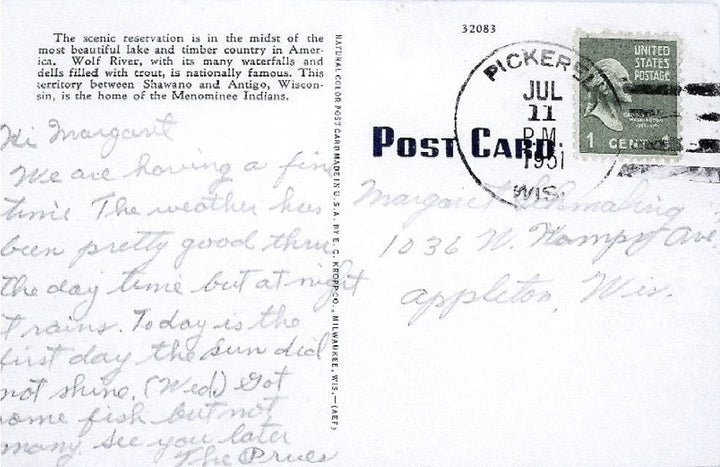 The scenic reservation is in the midst of the
most beautiful lake and timber country in Amer-
ica. Wolf River, with its many waterfalls and
dells filled with trout, is nationally famous. This
territory between Shawano and Antigo, Wiscon-
sin, is the home of the Menominee Indians.
Hi Margaret
We are having a fine
time The weather has
been pretty good thru
the day time but at night
t rains. Today is the
first day the sun did
not shine. (Wed.) Got
some fish but not
many see you later
The Prues
NATURAL COLOR POST CARD MADE IN U.S.A. BY E. C. KROPP CO., MILWAUKEE, WIS.—(AEF)
32083
POST CARD
PICKEREL
JUL
11
P.M.
1951
WIS.
UNITED
STATES
POSTAGE
WASHINGTON
1 CENT 1
Margaret
1036 W. Ave
Appleton, Wis.